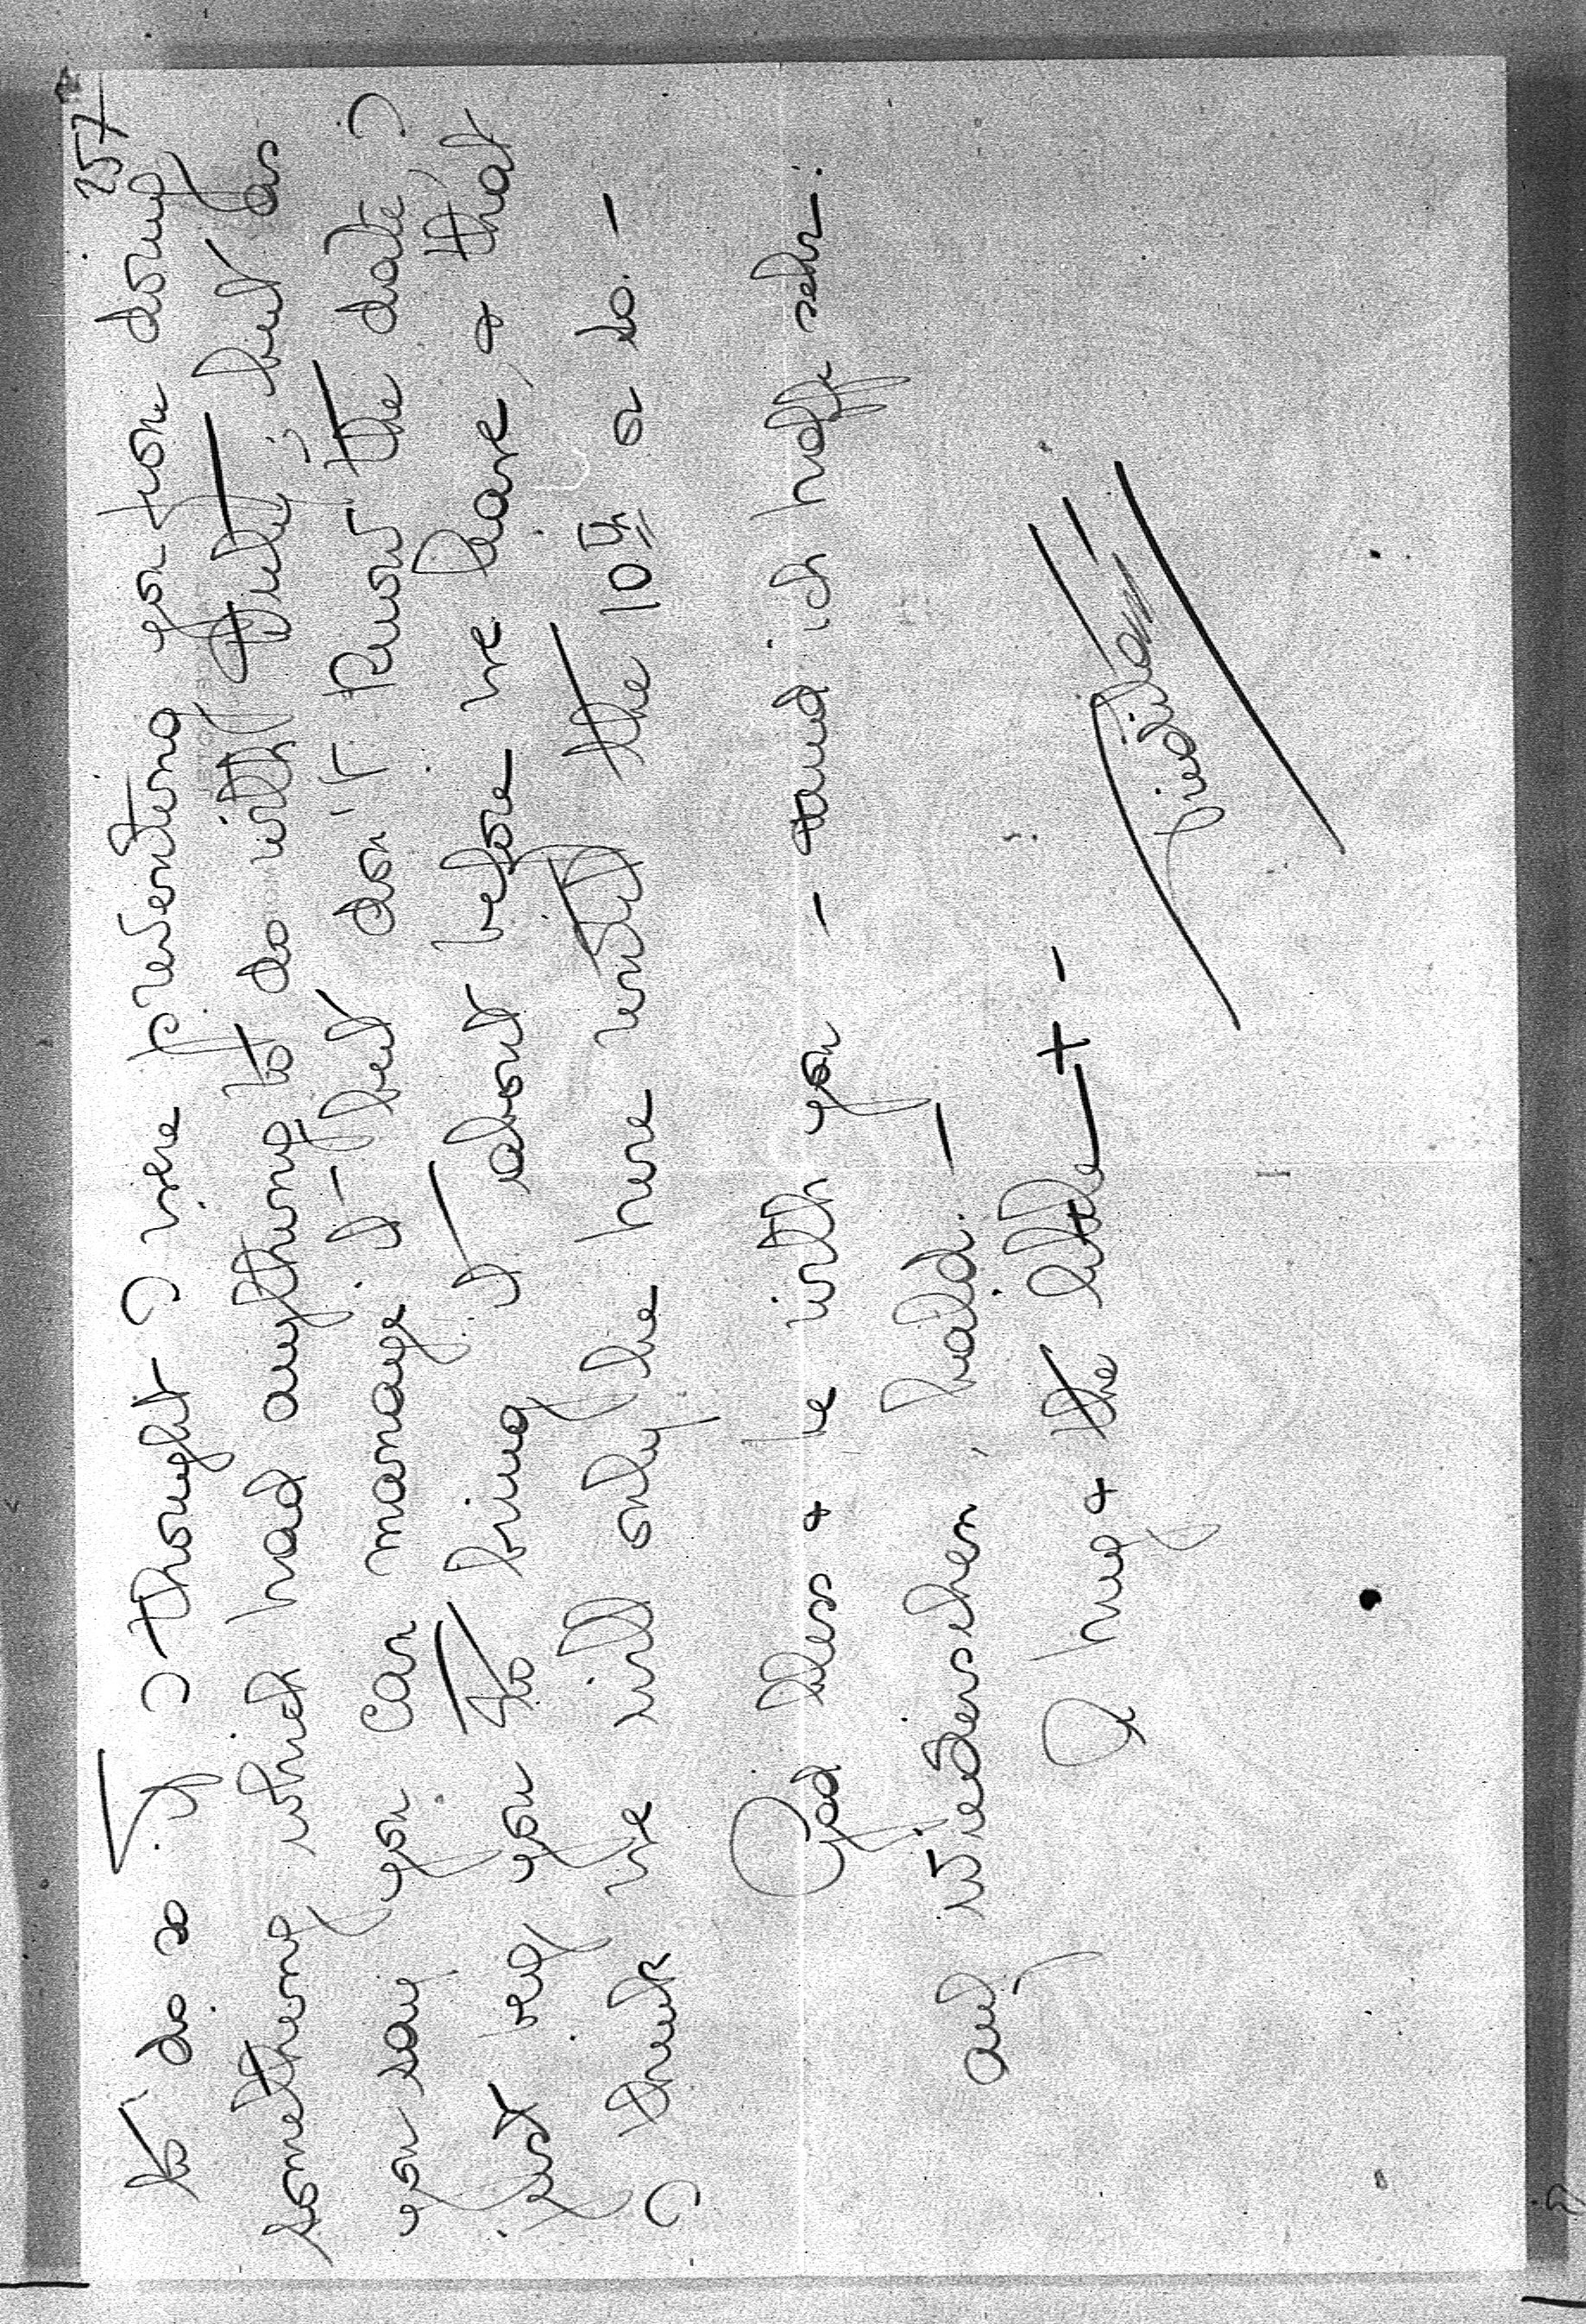 257
to do so. If I thought I were preventing you from doing
something which had anything to do with duty; but as
you say you can manage it – but don't know the date, I
just beg you to bring it about before we leave, & that
I think we will only be here until the 10th or so. –
God bless & be with you – und ich hoffe sehr
auf wiedersehen, bald. –
A hug & the little + –